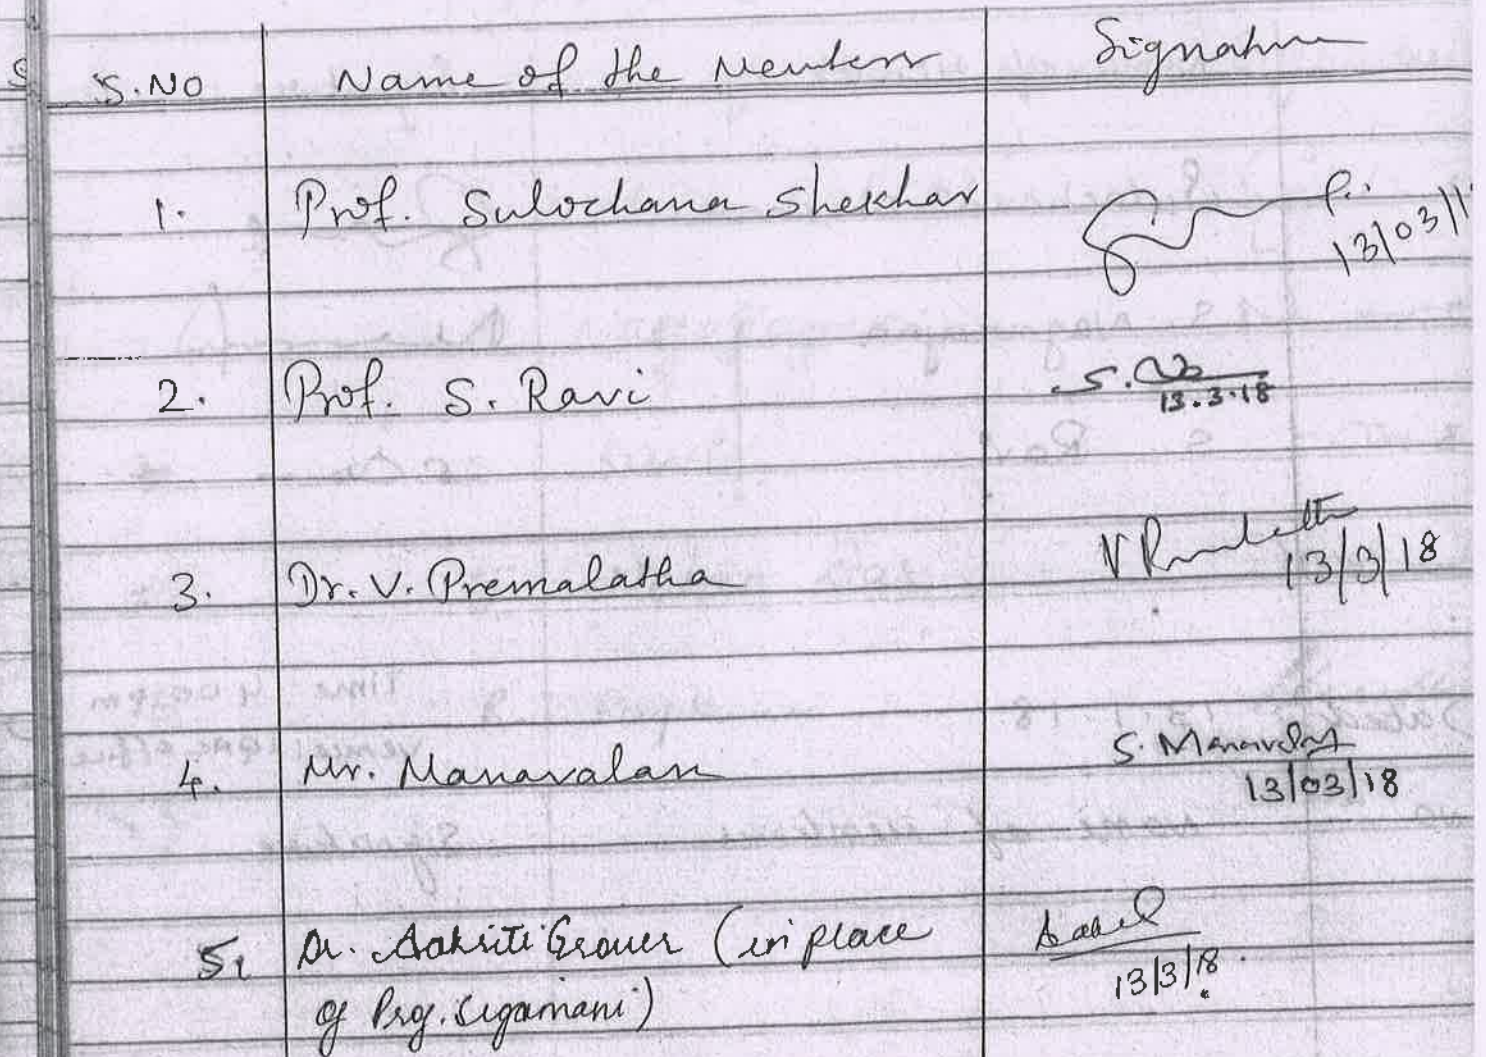 S.NO Name of the Members Signature
1. Prof. Sulochana Shekhar
13/03/1
2. Prof. S. Ravi S.
13.3.18
3. Dr. V. Premalatha V
13/3/18
4. Mr. Manavalan S. Manavalan
13/03/18
5. Dr. Aakriti Grover (in place
13/3/18.
of Prof. Sigamani)